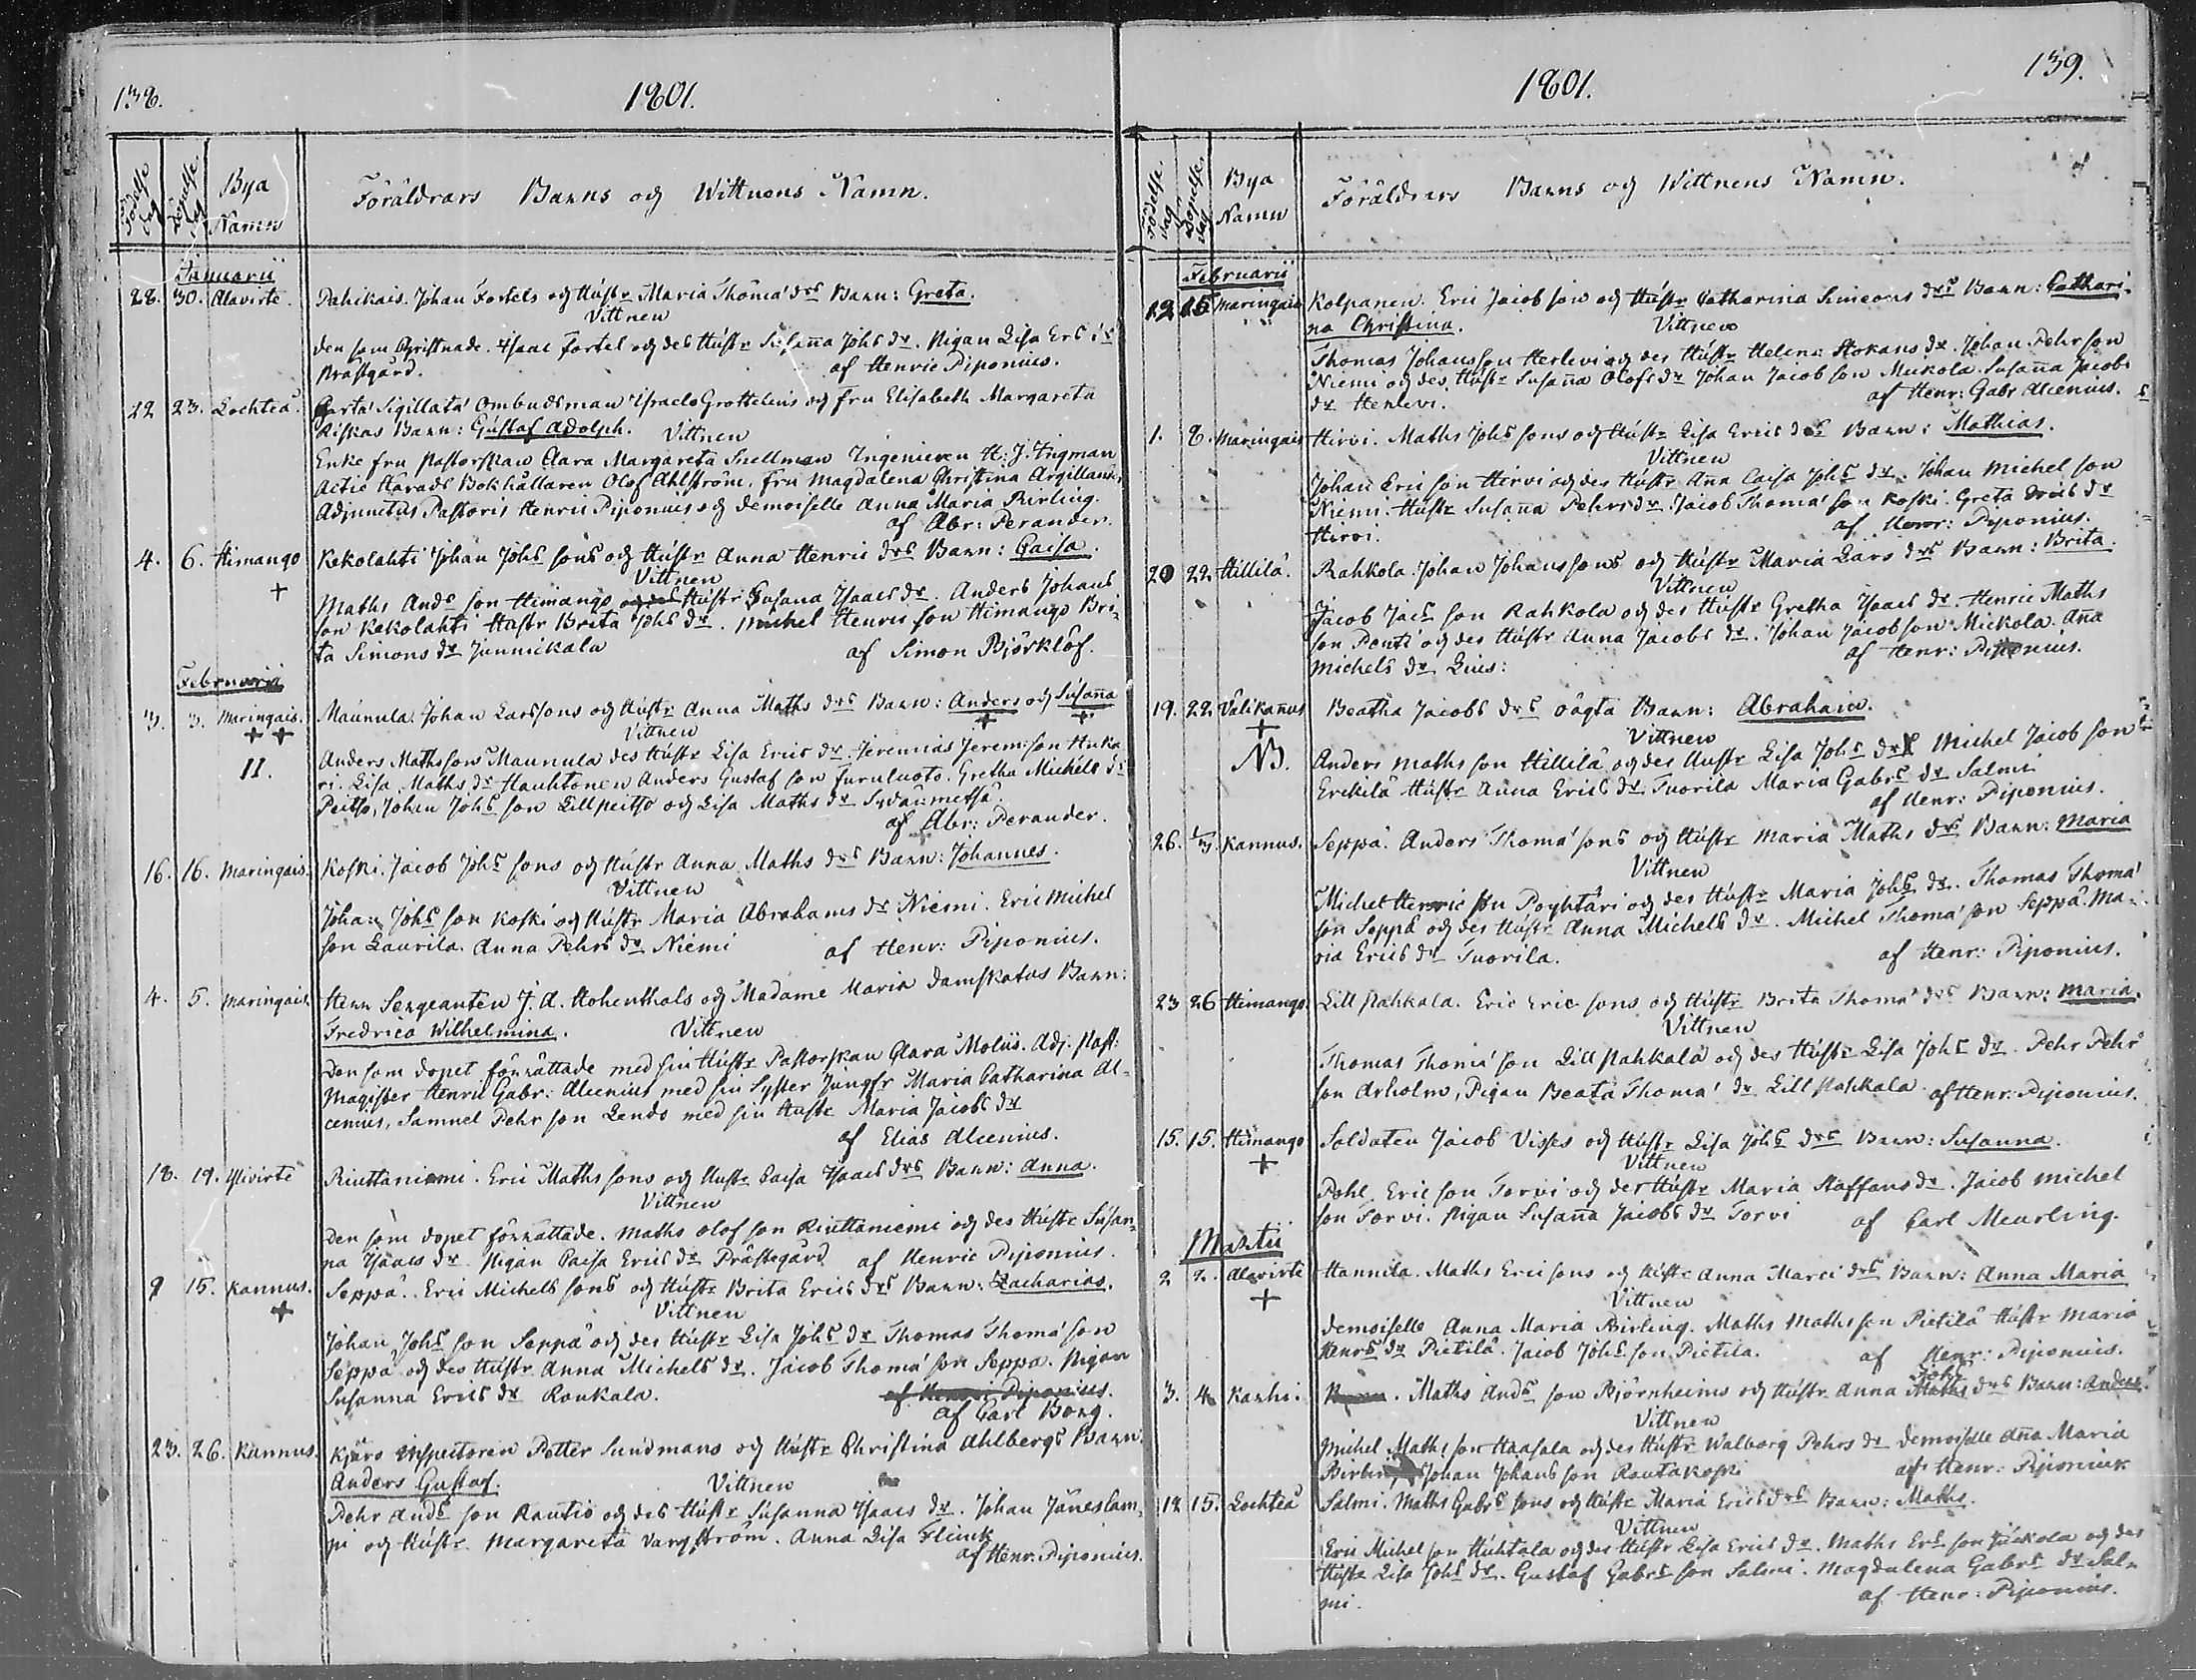 138.
1801.
Födelse dag
Döpelse dag
Bya Namn
Föräldrars Barns och Wittnens Namn.
Januarii
28. 30. Alavirte. Pahikais. Johan Fortels och Hustr Maria Thomæ drs Barn: Greta.
Vittnen
den som Christnade. Isaac Fortel och des Hustr Susaña Johs dr. Pigan Lisa Ers i
Prästgård. af Henric Piponius.
22 23. Lochteå. Carta Sigillata Ombudsman Israels Grottelins och Fru Elisabeth Margareta
Riskas Barn: Gustaf Adolph. Vittnen
Enke fru Pastorskan Clara Margareta Snellman Ingenieuren H: J. Frigman
Actie Härads Bokhållaren Olof Ahlström, Fru Magdalena Christina Argillander
Adjunctus Pastoris Henric Piponius och Demoiselle Anna Maria Birling.
af Abr: Perander.
4. 6. Himango Kekolahti Johan Johs sons och Hustr Anna Henric drs Barn: Caisa.
+ Vittnen
Maths Ands son Himango och des Hustr Susana Isaacs dr. Anders Johans
son Kekolahti Hustr Brita Johs dr. Michel Henric son Himango Bri-
ta Simons dr Junnickala af Simon Björklöf.
Februarii
3. 3. Maringais. Maunula. Johan Larssons och Hustr Anna Maths drs Barn: Anders och Susaña
+ + Vittnen + +
II. Anders Mathsson Maunula des Hustr Lisa Erics dr. Jeremias Jerem: son Huka
ri. Lisa Maths dr Hauhtonen Anders Gustaf son Furuluoto. Gretha Michels dr
Peitso, Johan Johs son Lillpeitso och Lisa Maths dr Sydänmetsä.
af Abr: Perander.
16. 16. Maringais. Koski. Jacob Johs sons och Hustr Anna Maths drs Barn: Johannes.
Vittnen
Johan Johs son Koski och Hustr Maria Abrahams dr Niemi. Eric Michel
son Laurila. Anna Pehrs dr Niemi af Henr: Piponius.
4. 5. Maringais. Herr Sergeanten J. A. Hohenthals och Madame Maria Damskatas Barn:
Fredrica Wilhelmina. Vittnen
Den som dopet förrättade med sin Hustr Pastorskan Clara Moliis. Adj. Past:
Magister Henric Gabr: Alcenius med sin Syster Jungfr Maria Catharina Al-
cenius, Samuel Pehr son Lends med sin Hustr Maria Jacobs dr
af Elias Alcenius.
18. 19. Ylivirte Riuttaniemi. Eric Maths sons och Hustr Caisa Isaacs drs Barn: Anna.
Vittnen
Den som dopet förrättade. Maths Olof son Riuttaniemi och des Hustr Susan-
na Isaacs dr. Pigan Caisa Erics dr Prästegård af Henric Piponius.
9 15. Kannus. Seppä. Eric Michels sons och Hustr Brita Erics drs Barn: Zacharias.
+ Vittnen
Johan Johs son Seppä och des Hustr Lisa Johs dr Thomas Thomæ son
Seppä och des Hustr Anna Michels dr. Jacob Thomæ son Seppä. Pigan
Susanna Erics dr Roukala. af Henric Piponius.
af Carl Borg.
23. 26. Kannus. Kjäro Inspectoren Petter Sundmans och Hustr Christina Ahlbergs Barn
Anders Gustaf. Vittnen
Pehr Ands son Rautio och des Hustr Susanna Isaacs dr. Johan Jäneslam-
pi och Hustr Margareta Vargström. Anna Lisa Flink
af Henr. Piponius.
139.
1801.
Födelse dag
Döpelse dag
Bya Namn
Föräldrars Barns och Wittnens Namn.
Februarii
12 15 Maringais Kolpanen. Eric Jacob son och Hustr Catharina Simeons drs Barn: Cathari-
na Christina. Vittnen
Thomas Johansson Herlevi och des Hustr Helena Hokans dr. Johan Pehrson
Niemi och des Hustr Susaña Olofs dr Johan Jacob son Mickola. Susaña Jacobs
dr Herlevi. af Henr: Gabr Alcenius.
1. 8. Maringais Hirvi. Maths Johs sons och Hustr Lisa Erics drs Barn: Mathias.
Vittnen
Johan Eric son Hirvi och des Hustr Aña Caisa Johs dr. Johan Michel son
Niemi. Hustr Susaña Pehrs dr. Jacob Thomæ son Koski. Greta Erics dr
Hirvi. af Henr: Piponius.
20 22 Hillilä. Rahkola. Johan Johanssons och Hustr Maria Lars drs Barn: Brita.
Vittnen
Jacob Jacs son Rahkola och des Hustr Gretha Isaacs dr. Henric Maths
son Ponti och des Hustr Anna Jacobs dr. Johan Jacob son Mickola. Aña
Michels dr Lius: af Henr: Piponius.
19. 22. Välikañus Beatha Jacobs drs oägta Barn: Abraham.
+ Vittnen
NB. Anders Maths son Hillilä och des Hustr Lisa Johs dr Michel Jacob son
Erikilä Hustr Anna Erics dr Tuorila Maria Gabrs dr Salmi
af Henr: Piponius.
26. 1/3. Kannus. Seppä. Anders Thomæ sons och Hustr Maria Maths drs Barn: Maria
Vittnen
Michel Henric son Pöyhtäri och des Hustr Maria Johs dr. Thomas Thomæ
son Seppä och des Hustr Anna Michels dr. Michel Thomæ son Seppä. Ma-
ria Erics dr Tuorila. af Henr: Piponius.
23 26 Himango. Lill Pahkala. Eric Eric sons och Hustr Brita Thomæ drs Barn: Maria.
Vittnen
Thomas Thomæ son Lill Pahkala och des Hustr Lisa Johs dr. Pehr Pehr
son Arholm, Pigan Beata Thomæ dr Lill Pahkala. af Henr: Piponius.
15. 15. Himango Soldaten Jacob Visses och Hustr Lisa Johs drs Barn: Susanna.
+ Vittnen
Pehl Eric son Torvi och des Hustr Maria Staffans dr. Jacob Michel
son Torvi. Pigan Susaña Jacobs dr Torvi af Carl Meurling.
Martii
2 2. Alavirte Hannila. Maths Eric sons och Hustr Anna Marci drs Barn: Anna Maria
+ Vittnen
Demoiselle Anna Maria Birling. Maths Maths son Pietilä Hustr Maria
Henrs dr Pietilä. Jacob Johs son Pietilä. af Henr: Piponius.
3. 4 Karhi. Maths Ands son Björnheims och Hustr Anna Johs Maths drs Barn: Anders.
Vittnen
Michel Maths son Haasala och des Hustr Walborg Pehrs dr Demoiselle Aña Maria
Birling Johan Johans son Rautakoski af Henr: Piponius
12 15. Lochteå Salmi. Maths Gabrs sons och Hustr Maria Erics drs Barn: Maths.
Vittnen
Eric Michel son Huhtala och des Hustr Lisa Erics dr. Maths Ers son Juckola och des
Hustr Lisa Johs dr. Gustaf Gabrs son Salmi. Magdalena Gabrs dr Sal-
mi. af Henr: Piponius.